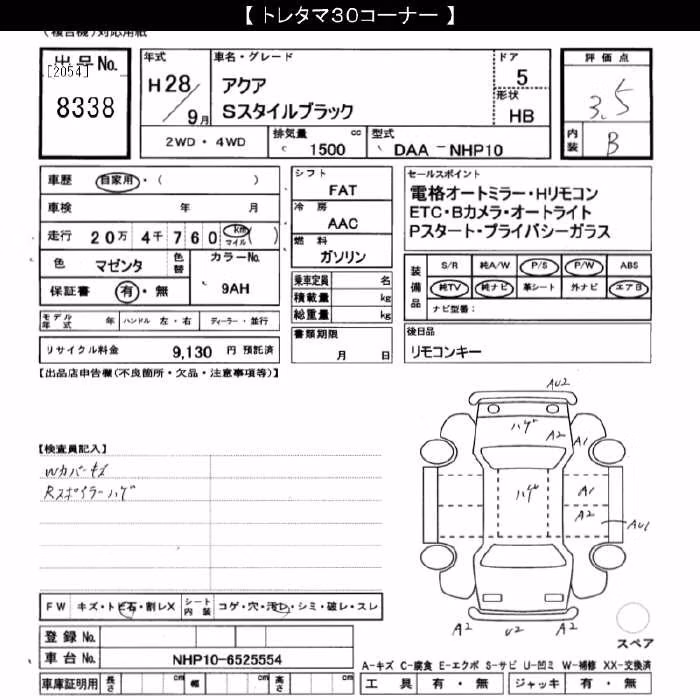 【 トレタマ３０コーナー 】
(複合機)対応用紙
出品No.
[2054]
8338
年式
H28/9月
車名・グレード
アクア
Sスタイルブラック
ドア
5
形状
HB
2WD・4WD
排気量 cc
1500
型式
DAA － NHP10
評価点
3.5
内装
B
車歴 自家用・( )
車検 年 月
走行 20万 4千 760 km マイル ( )
色 マゼンタ
色替
カラーNo.
9AH
保証書 有・無
モデル年式 年 ハンドル 左・右 ディーラー・並行
リサイクル料金 9,130 円 預託済
シフト
FAT
冷房
AAC
燃料
ガソリン
乗車定員 名
積載量 kg
総重量 kg
書類期限
月 日
セールスポイント
電格オートミラー・Hリモコン
ETC・Bカメラ・オートライト
Pスタート・プライバシーガラス
装備品
S/R 純A/W P/S P/W ABS
純TV 純ナビ 革シート 外ナビ エアB
ナビ型番：
後日品
リモコンキー
【出品店申告欄(不良箇所・欠品・注意事項等)】
【検査員記入】
Wカバーキズ
Rスポイラーハゲ
AU2
ハゲ
A2
A1
ハゲ
A1
A2
AU1
A2
U2
A2
スペア
FW キズ・トビ石・割レX
シート内装 コゲ・穴・汚レ・シミ・破レ・スレ
登録No.
車台No. NHP10-6525554
車庫証明用 長さ cm 幅 cm 高さ cm
A-キズ C-腐食 E-エクボ S-サビ U-凹ミ W-補修 XX-交換済
工具 有・無 ジャッキ 有・無